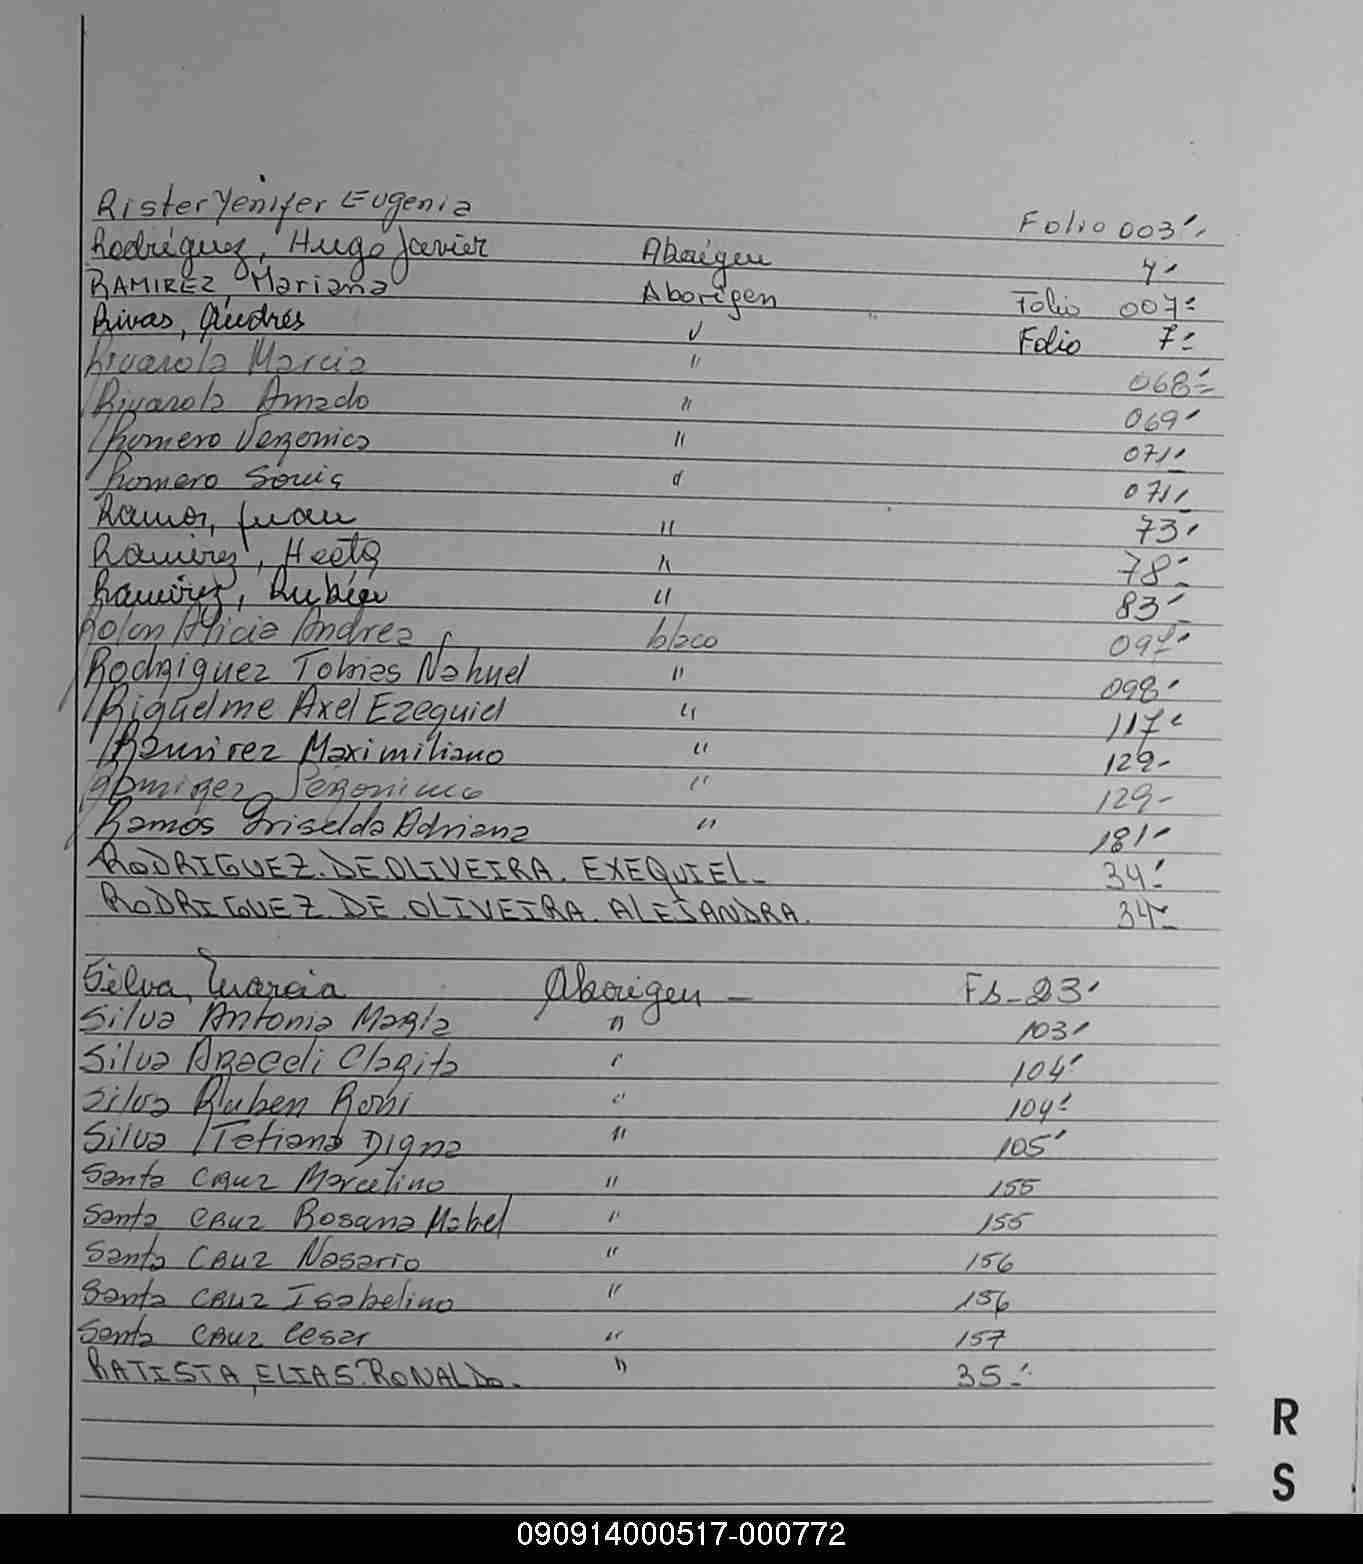 Rister Yenifer Eugenia Folio 003
Rodríguez, Hugo Javier Aborigen 4
RAMIREZ, Mariana Aborigen Folio 007
Rivas, Andrés " Folio 7
Rivarola Marcia " 068
Rivarola Amado " 069
Romero Veronica " 071
Romero Sonia " 071
Ramos, Juan " 73
Ramirez, Hector " 78
Ramirez, Rubén " 83
Rolon Alicia Andrea blaco
Rodriguez Tobias Nahuel " 098
Riquelme Axel Ezequiel " 117
Ramirez Maximiliano " 129
Ramirez " 129
Ramos Griselda Adriana " 181
RODRIGUEZ. DE OLIVEIRA. EXEQUIEL- 34
RODRIGUEZ. DE OLIVEIRA. ALEJANDRA. 34
Silva, Marcia Aborigen - Fs- 23
Silva Antonia Maria " 103
Silva Araceli Clarita " 104
Silva Ruben Roni " 104
Silva Tetiana Digna " 105
Santa Cruz Marcelino " 155
Santa Cruz Rosana Mabel " 155
Santa Cruz Nasario " 156
Santa Cruz Isabelino " 156
Santa Cruz Cesar " 157
BATISTA, ELIAS. RONALDO. " 35
R
S
090914000517-000772